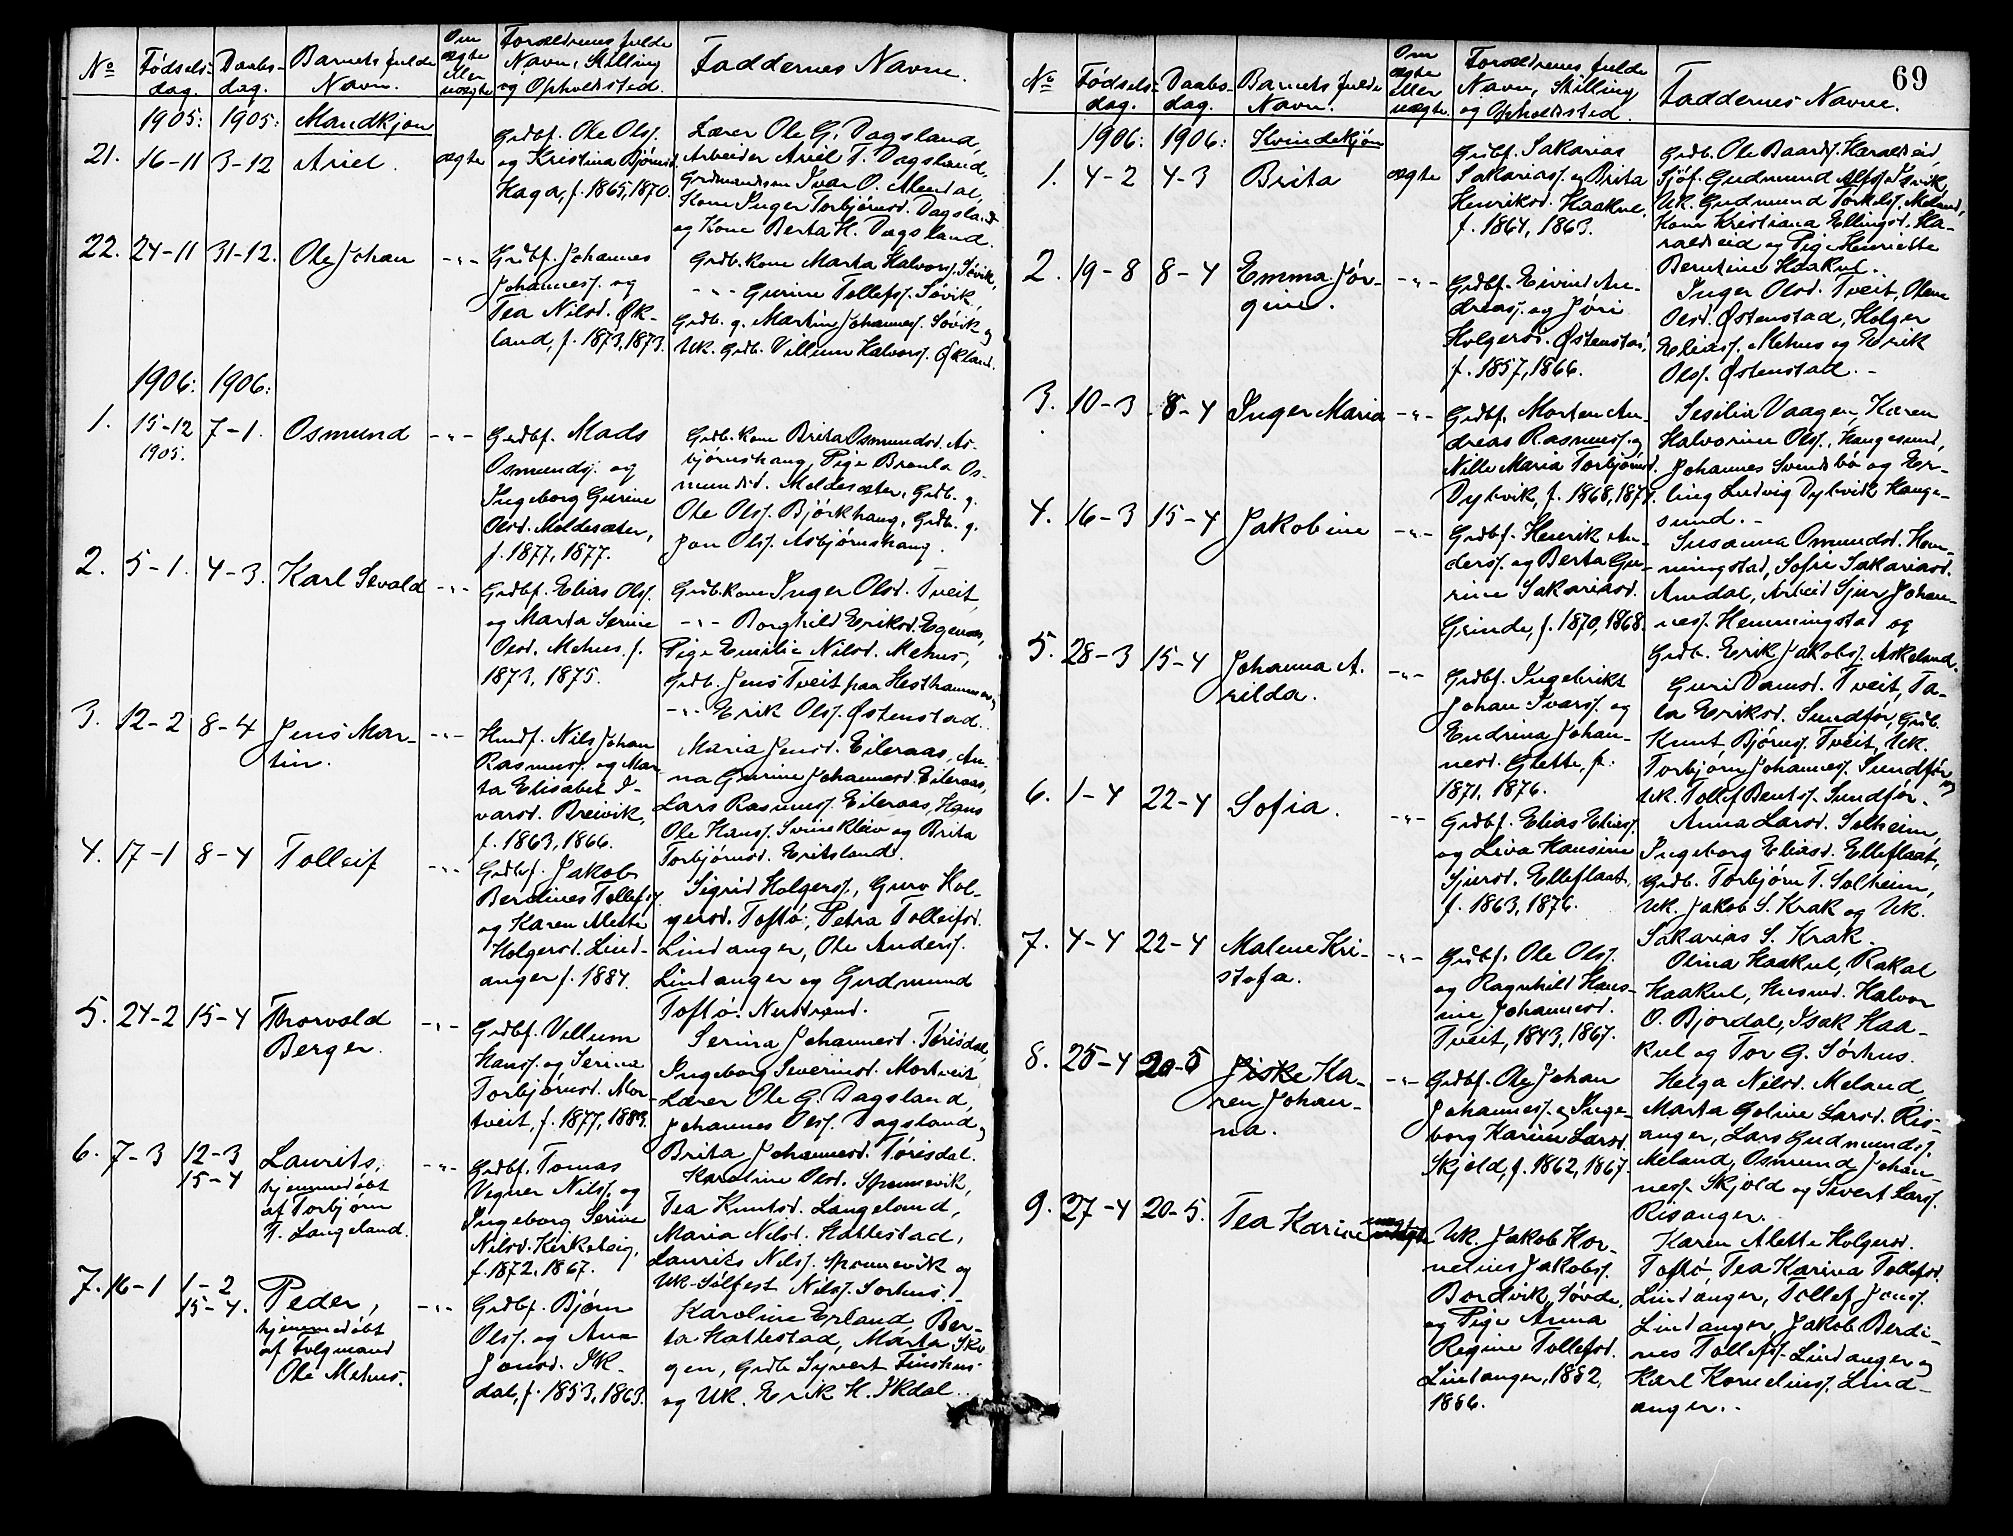 No Fødsels- Daabs- Barnets fulde Om Forældrenes fulde Faddernes Navne.
dag. dag. Navn. ægte Navn, Stilling
eller og Opholdssted.
uægte
1905: 1905: Mandkjøn
21. 16-11 3-12 Ariel. ægte
Grdbf. Ole Ols.
og Kristina Bjørnsd.
Haga, f. 1865, 1870.
Lærer Ole G. Dagsland,
Arbeider Ariel T. Dagsland,
Grdmandssøn Ivar O. Alendal,
Kone Inger Torbjørnsd. Dagsland
og Kone Berta H. Dagsland.
22. 24-11 31-12. Ole Johan -"-
Grdbf. Johannes
Johanness. og
Tea Nilsd. Øk-
land, f. 1873, 1873.
Grdb. kone Marta Halvors. Søvik,
-"- Gurine Tollefs. Søvik,
Grdb. g. Martin Johannes. Søvik og
Uk. Grdb. Villum Halvors. Økland.
1906: 1906:
1. 15-12 7-1. Osmund -"-
1905.
Grdbf. Mads
Osmunds. og
Ingeborg Gurine
Olsd. Meldesæter,
f. 1877, 1877.
Grdb. kone Brita Osmundsd. As-
bjørnshaug, Pige Bronla Os-
mundsd. Meldesæter, Grdb. g.
Ole Ols. Bjørkhaug, Grdb. g.
Jon Ols. Asbjørnshaug.
2. 5-1. 4-3. Karl Sevald -"-
Grdbf. Elias Ols.
og Marta Serine
Olsd. Mehus, f.
1873, 1875.
Grdb. kone Inger Olsd. Tveit,
-"- Borghild Eriksd. Egenæs,
Pige Emilie Nilsd. Mehus,
Grdb. Jens Tveit paa Hesthammer og
-"- Erik Ols. Østenstad.
3. 12-2 8-4 Jens Mar- -"-
tin.
Husf. Nils Johan
Rasmuss. og Mar-
ta Elisabet I-
varsd. Breivik,
f. 1863, 1866.
Maria Jensd. Eileraas, An-
na Gurine Johannesd. Eileraas,
Lars Rasmuss. Eileraas, Hans
Ole Hans. Svinekleiv og Brita
Torbjørnsd. Eritsland.
4. 17-1 8-4 Tolleif -"-
Grdbf. Jakob
Berdines Tollefs.
og Karen Mette
Holgersd. Lind-
anger f. 1884.
Sigrid Holgers., Guro Hol-
gersd. Toftø, Petra Tolleifsd.
Lindanger, Ole Anders.
Lindanger og Gudmund
Toftø. Nerstrand.
5. 24-2 15-4 Thorvald -"-
Berger.
Grdbf. Villum
Hans. og Serina
Torbjørnsd. Mor-
tveit, f. 1877, 1883.
Serina Johannesd. Tørisdal,
Ingeborg Severinsd. Mortveit,
Lærer Ole G. Dagsland,
Johannes Ols. Dagsland og
Brita Johannesd. Tørisdal.
6. 7-3 12-3 Laurits, -"-
15-4 hjemmedøbt
af Torbjørn
T. Langeland.
Grdbf. Tomas
Vegner Nils. og
Ingeborg Serine
Nilsd. Kirketeig,
f. 1872, 1867.
Karoline Olsd. Spannevik,
Tea Knutsd. Langeland,
Maria Nilsd. Hattestad,
Laurits Nils. Spannevik og
Uk. Sølfest Nils. Sørhus.
7. 16-1 1-2 Peder, -"-
15-4. hjemmedøbt
af Folgmand
Ole Mehus.
Grdbf. Bjørn
Ols. og Ana
Jonsd. Ik-
dal, f. 1853, 1863.
Karoline Erland, Ber-
ta Hattestad, Marta Sko-
gen, Grdb. Syvert Finshus
og Uk. Erik H. Ikdal.
69
No Fødsels- Daabs- Barnets fulde Om Forældrenes fulde Faddernes Navne.
dag. dag. Navn. ægte Navn, Stilling
eller og Opholdssted.
uægte
1906: 1906: Kvindekjøn
1. 4-2 4-3 Brita ægte
Grdbf. Sakarias
Sakariass. og Brita
Henriksd. Haakul,
f. 1864, 1863.
Grdb. Ole Baards. Haraldseid,
Sjöf. Gudmund Alfs. Isvik,
Uk. Gudmund Torkels. Meland,
Kone Kristiana Ellingsd. Ha-
raldseid og Pige Henriette
Bentine Haakul.
2. 19-8 8-4 Emma Jør- -"-
gine.
Grdbf. Eivind An-
dreas. og Jøri
Holgersd. Østenstad,
f. 1857, 1866.
Inger Olsd. Tveit, Olene
Olsd. Østenstad, Holger
Elias. Mehus og Erik
Ols. Østenstad.
3. 10-3 8-4 Inger Maria -"-
Grdbf. Morten An-
dreas Rasmuss. og
Nille Maria Torbjørnsd.
Dybvik, f. 1868, 1877.
Sesilia Vaagen, Karen
Halvorine Ols., Haugesund,
Johannes Svendsbø og Er-
ling Ludvig Dybvik Hauge-
sund.
4. 16-3 15-4 Jakobine -"-
Grdbf. Henrik An-
ders. og Berta Gu-
rine Sakariasd.
Grinde, f. 1870, 1868.
Susanna Omundsd. Hem-
mingstad, Sofie Sakariasd.
Amdal, Arbeid Sjur Johan-
nes. Hemmingstad og
Grdb. Erik Jakobs. Askeland.
5. 28-3 15-4 Johanna A- -"-
rilda.
Grdbf. Ingebrikt
Johan Ivars. og
Endrina Johan-
nesd. Glette, f.
1871, 1876.
Guri Damsd. Tveit, Ta-
la Eriksd. Sundfør, Grdb.
Knut Bjørns. Tveit, Uk.
Torbjørn Johannes. Sundfør og
Uk. Tollef Bents. Sundfør.
6. 1-4 22-4 Sofia. -"-
Grdbf. Elias Elias.
og Liva Hansine
Sjursd. Elleflaat,
f. 1863, 1876.
Anna Larsd. Solheim,
Ingeborg Eliasd. Elleflaat,
Grdb. Torbjørn T. Solheim,
Uk. Jakob S. Krak og Uk.
Sakarias S. Krak.
7. 4-4 22-4 Malene Kri- -"-
stofa.
Grdbf. Ole Ols.
og Ragnhild Hans-
ine Johannesd.
Tveit, 1843, 1867.
Olina Haakul, Rakal
Haakul, Husmd. Halvor
O. Bjordal, Isak Haa-
kul og Tor G. Sørhus.
8. 25-4 20-5 Jiske Ka- -"-
ren Johan-
na.
Grdbf. Ole Johan
Johannes. og Inge-
borg Karine Larsd.
Skjold, f. 1862, 1867.
Helga Nilsd. Meland,
Marta Goline Larsd. Ris-
anger, Lars Gudmunds.
Meland, Osmund Johan-
nes. Skjold og Sivert Lars.
Risanger.
9. 27-4 20-5. Tea Karine uægte
Uk. Jakob Kor-
nelius Jakobs.
Bordvik, Søvde,
og Pige Anna
Regine Tollefsd.
Lindanger, 1852,
1866.
Karen Alette Holgersd.
Toftø, Tea Karina Tollefsd.
Lindanger, Tollef Jons.
Lindanger, Jakob Berdi-
nes Tollefs. Lindanger og
Karl Kornelius. Lind-
anger.